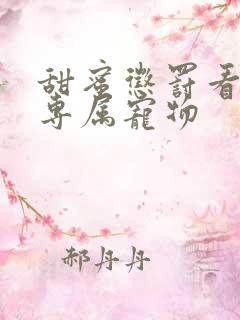 甜蜜惩罚看
专属宠物
郝丹丹